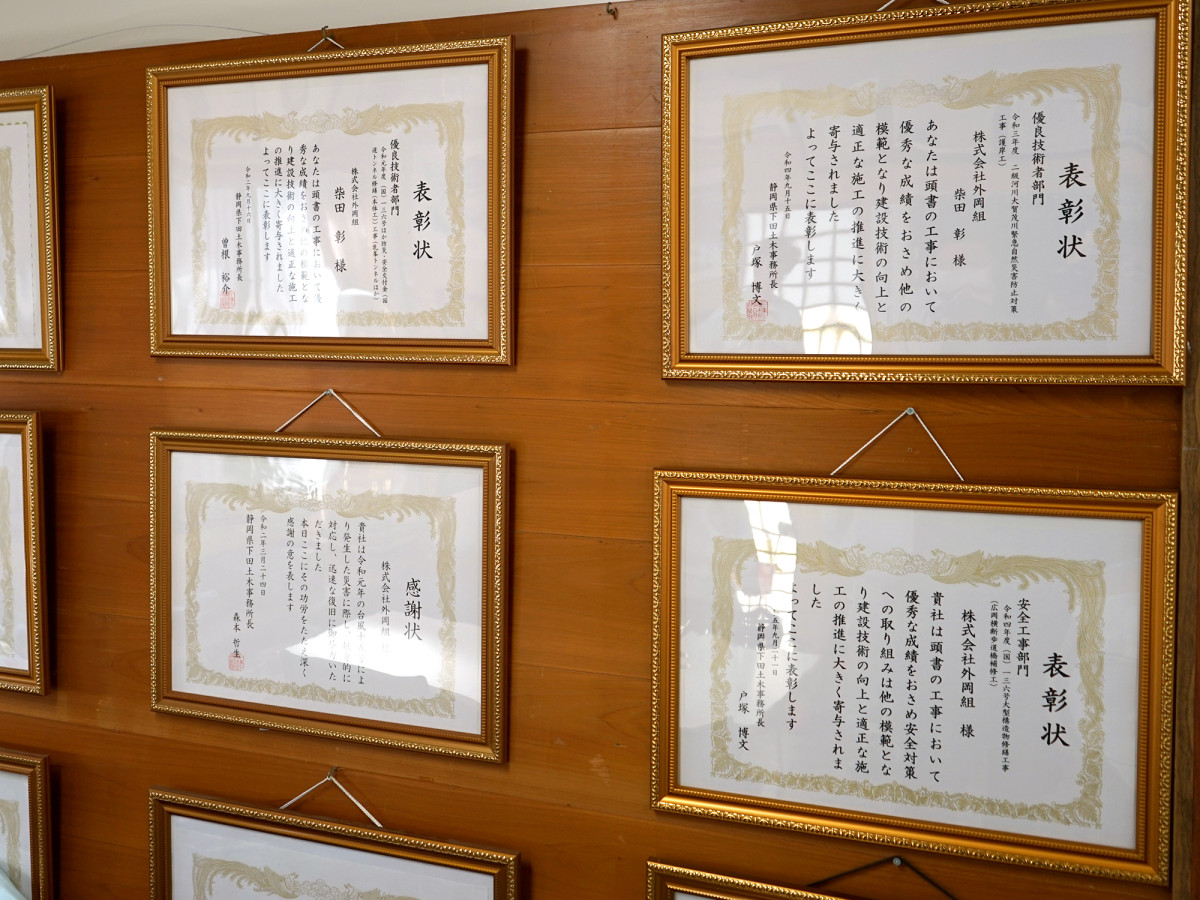 表彰状
優良技術者部門
令和元年度(国)一三六号ほか防災・安全交付金(国
道トンネル修繕(本体工))工事(乳峯トンネルほか)
株式会社外岡組
柴田 彰 様
あなたは頭書の工事において優
秀な成績をおさめ他の模範とな
り建設技術の向上と適正な施工
の推進に大きく寄与されました
よってここに表彰します
令和二年九月十六日
静岡県下田土木事務所長
曽根 裕介
表彰状
優良技術者部門
令和三年度 二級河川大賀茂川緊急自然災害防止対策
工事(護岸工)
株式会社外岡組
柴田 彰 様
あなたは頭書の工事において
優秀な成績をおさめ他の
模範となり建設技術の向上と
適正な施工の推進に大きく
寄与されました
よってここに表彰します
令和四年九月十五日
静岡県下田土木事務所長
戸塚 博文
感謝状
株式会社外岡組
貴社は令和元年の台風十 によ
り発生した災害に際し 的に
対応し、迅速な復旧に御尽力いた
だきました
本日ここにその功労をたたえ深く
感謝の意を表します
令和二年三月二十四日
静岡県下田土木事務所長
森本 哲生
表彰状
安全工事部門
令和四年度(国)一三六号大型構造物修繕工事
(広岡横断歩道橋補修工)
株式会社外岡組 様
貴社は頭書の工事において
優秀な成績をおさめ安全対策
への取り組みは他の模範とな
り建設技術の向上と適正な施
工の推進に大きく寄与されま
した
よってここに表彰します
五年九月二十一日
静岡県下田土木事務所長
戸塚 博文